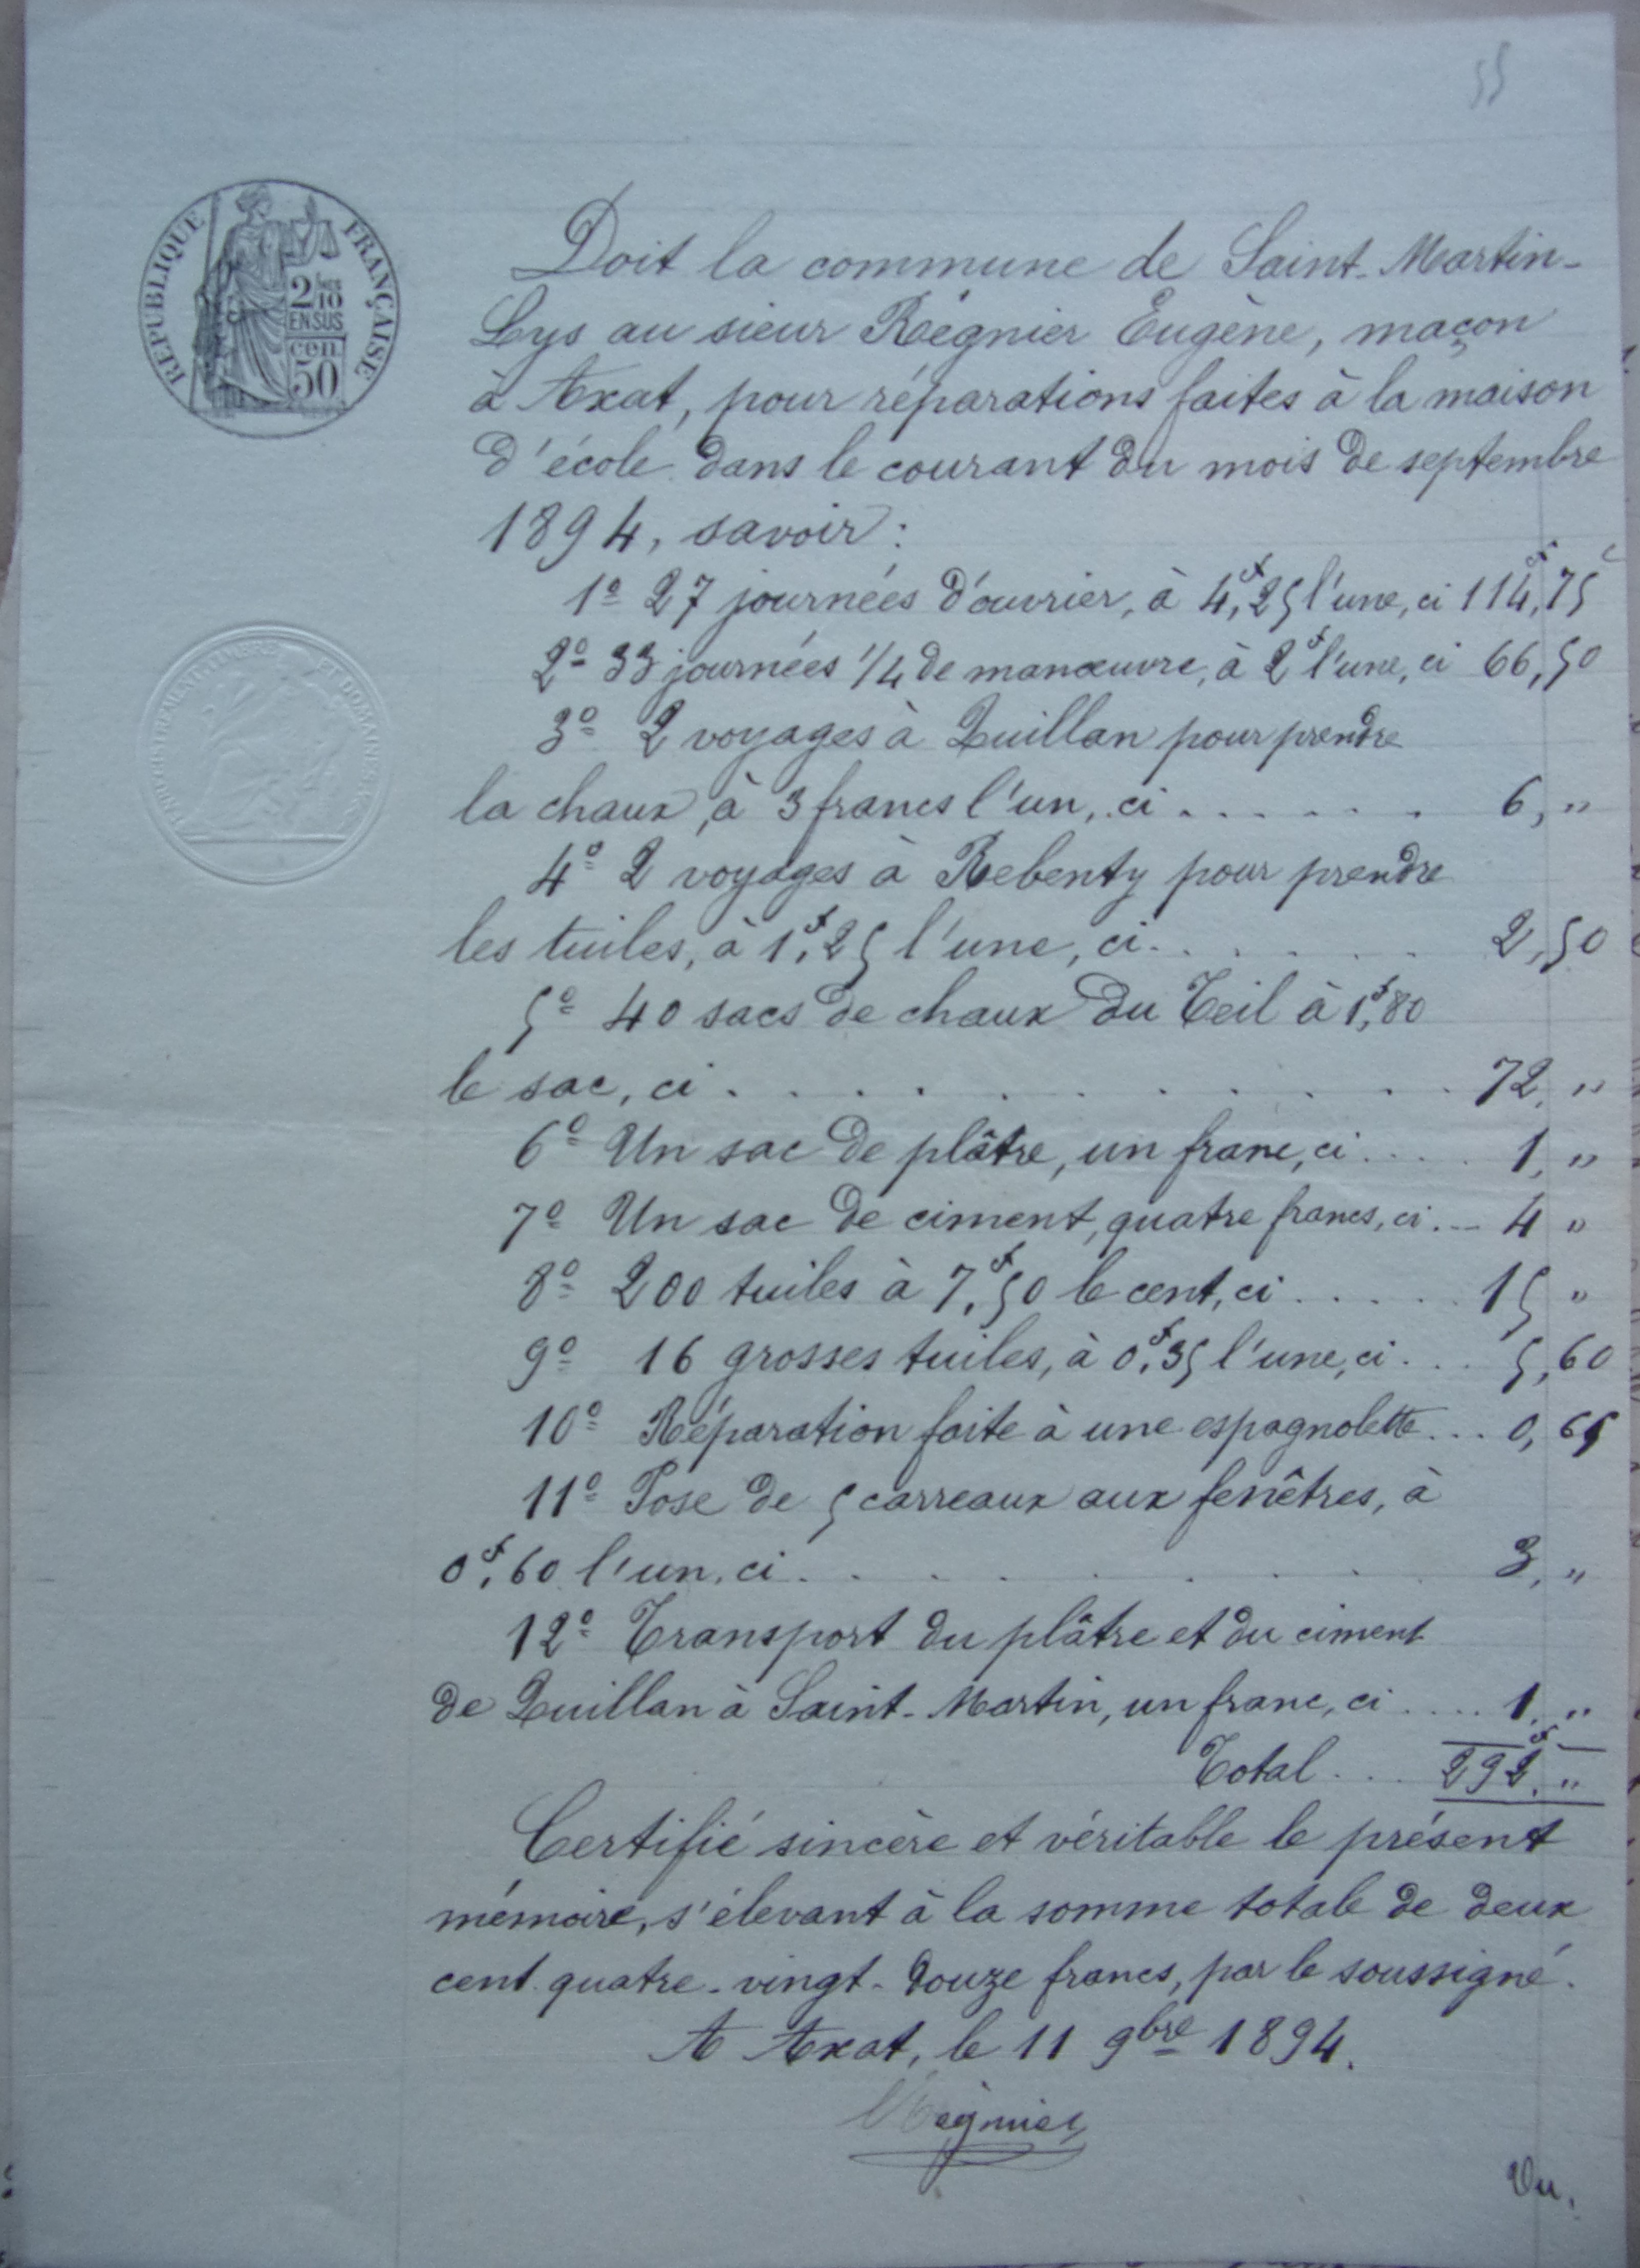 55
RÉPUBLIQUE FRANÇAISE
2/10
EN SUS
cen
50
Doit la commune de Saint-Martin-
Lys au sieur Règnier Eugène, maçon
à Axat, pour réparations faites à la maison
d'école dans le courant du mois de septembre
1894, savoir:
1º 27 journées d'ouvrier, à 4f,25 l'une, ci 114f,75c
2º 33 journées 1/4 de manœuvre, à 2f l'une, ci 66,50
3º 2 voyages à Quillan pour prendre
la chaux, à 3 francs l'un, ci ...... 6, "
4º 2 voyages à Rebenty pour prendre
les tuiles, à 1f,25 l'une, ci ...... 2,50
5º 40 sacs de chaux du Teil à 1f,80
le sac, ci .......... 72, "
6º Un sac de plâtre, un franc, ci .... 1, "
7º Un sac de ciment, quatre francs, ci ... 4 "
8º 200 tuiles à 7f,50 le cent, ci ..... 15 "
9º 16 grosses tuiles, à 0f,35 l'une, ci ... 5,60
10º Réparation faite à une espagnolette ... 0,65
11º Pose de 5 carreaux aux fenêtres, à
0f,60 l'un, ci ......... 3, "
12º Transport du plâtre et du ciment
de Quillan à Saint-Martin, un franc, ci .... 1, "
Total ... 292f, "
Certifié sincère et véritable le présent
mémoire, s'élevant à la somme totale de deux
cent quatre-vingt-douze francs, par le soussigné.
A Axat, le 11 9bre 1894.
Règnier
Vu.